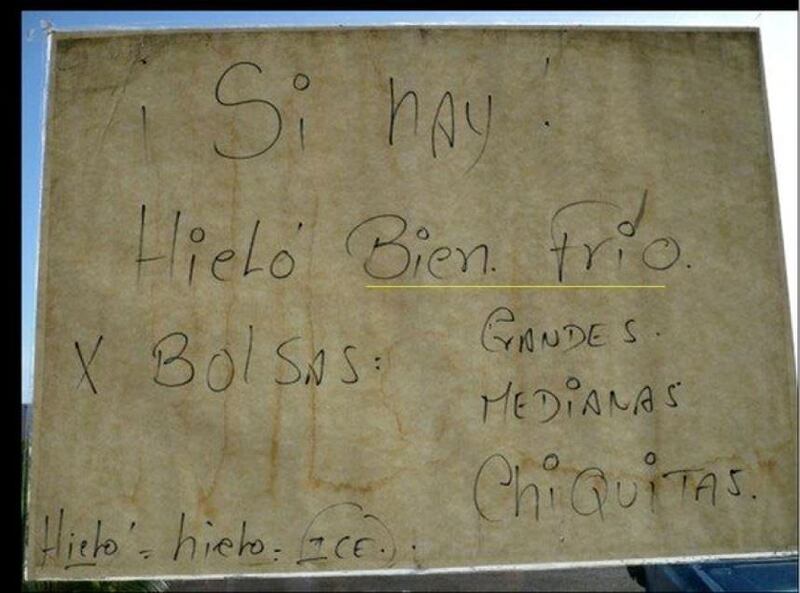 ¡ Si hAy !
Hieló Bien. frío.
X BOlSAS: GRANDES.
MEDiANAS
ChiQUiTAS.
Hieló = hielo = ICE.